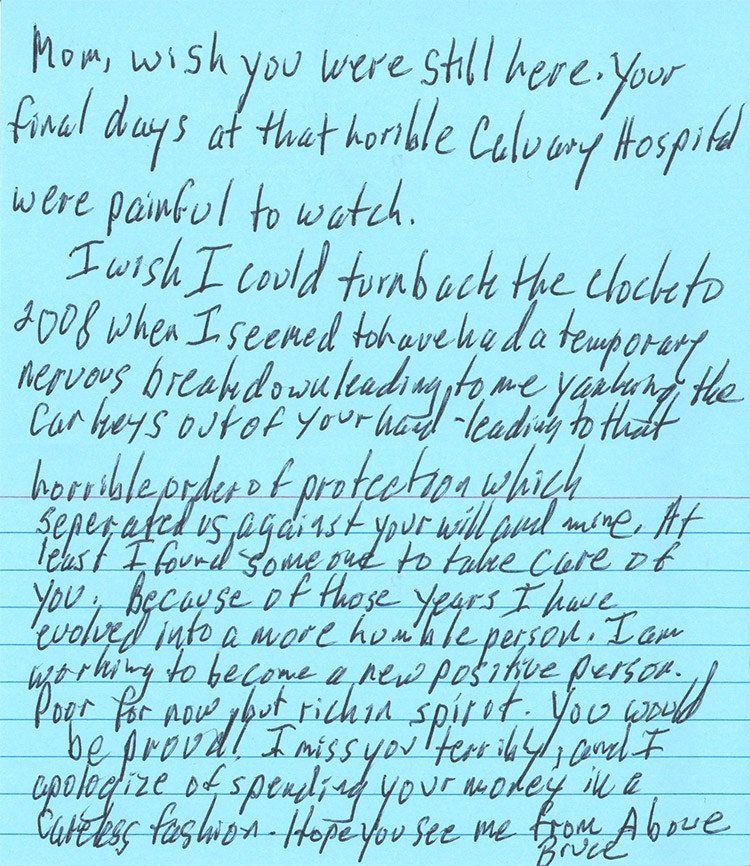 Mom, wish you were still here. Your
final days at that horible Calvary Hospital
were painful to watch.
I wish I could turn back the clock to
2008 when I seemed to have had a temporary
nervous breakdown leading to me yanking the
car keys out of your hand - leading to that
horrible order of protection which
seperated us, against your will and mine. At
least I found someone to take care of
you. Because of those years I have
evolved into a more humble person. I am
working to become a new positive person.
Poor for now, but rich in spirit. You would
be proud. I miss you terribly, and I
apologize of spending your money in a
careless fashion. Hope you see me from Above
Bruce